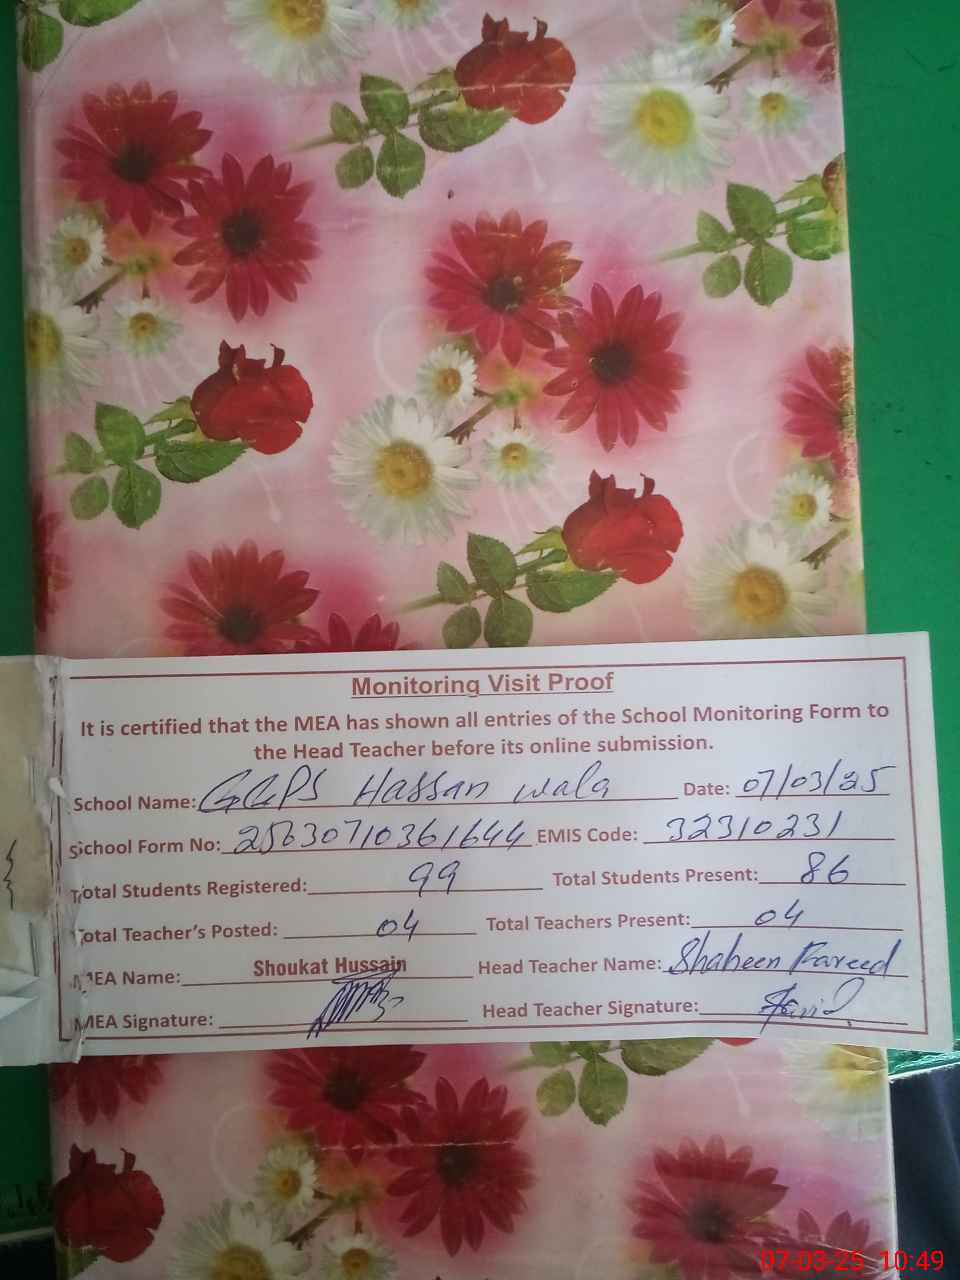 Monitoring Visit Proof
It is certified that the MEA has shown all entries of the School Monitoring Form to
the Head Teacher before its online submission.
School Name: GGPS Hassan wala Date: 07/03/25
School Form No: 25630710361644 EMIS Code: 32310231
Total Students Registered: 99 Total Students Present: 86
Total Teacher's Posted: 04 Total Teachers Present: 04
MEA Name: Shoukat Hussain Head Teacher Name: Shaheen Fareed
MEA Signature: Head Teacher Signature:
07-03-25 10:49